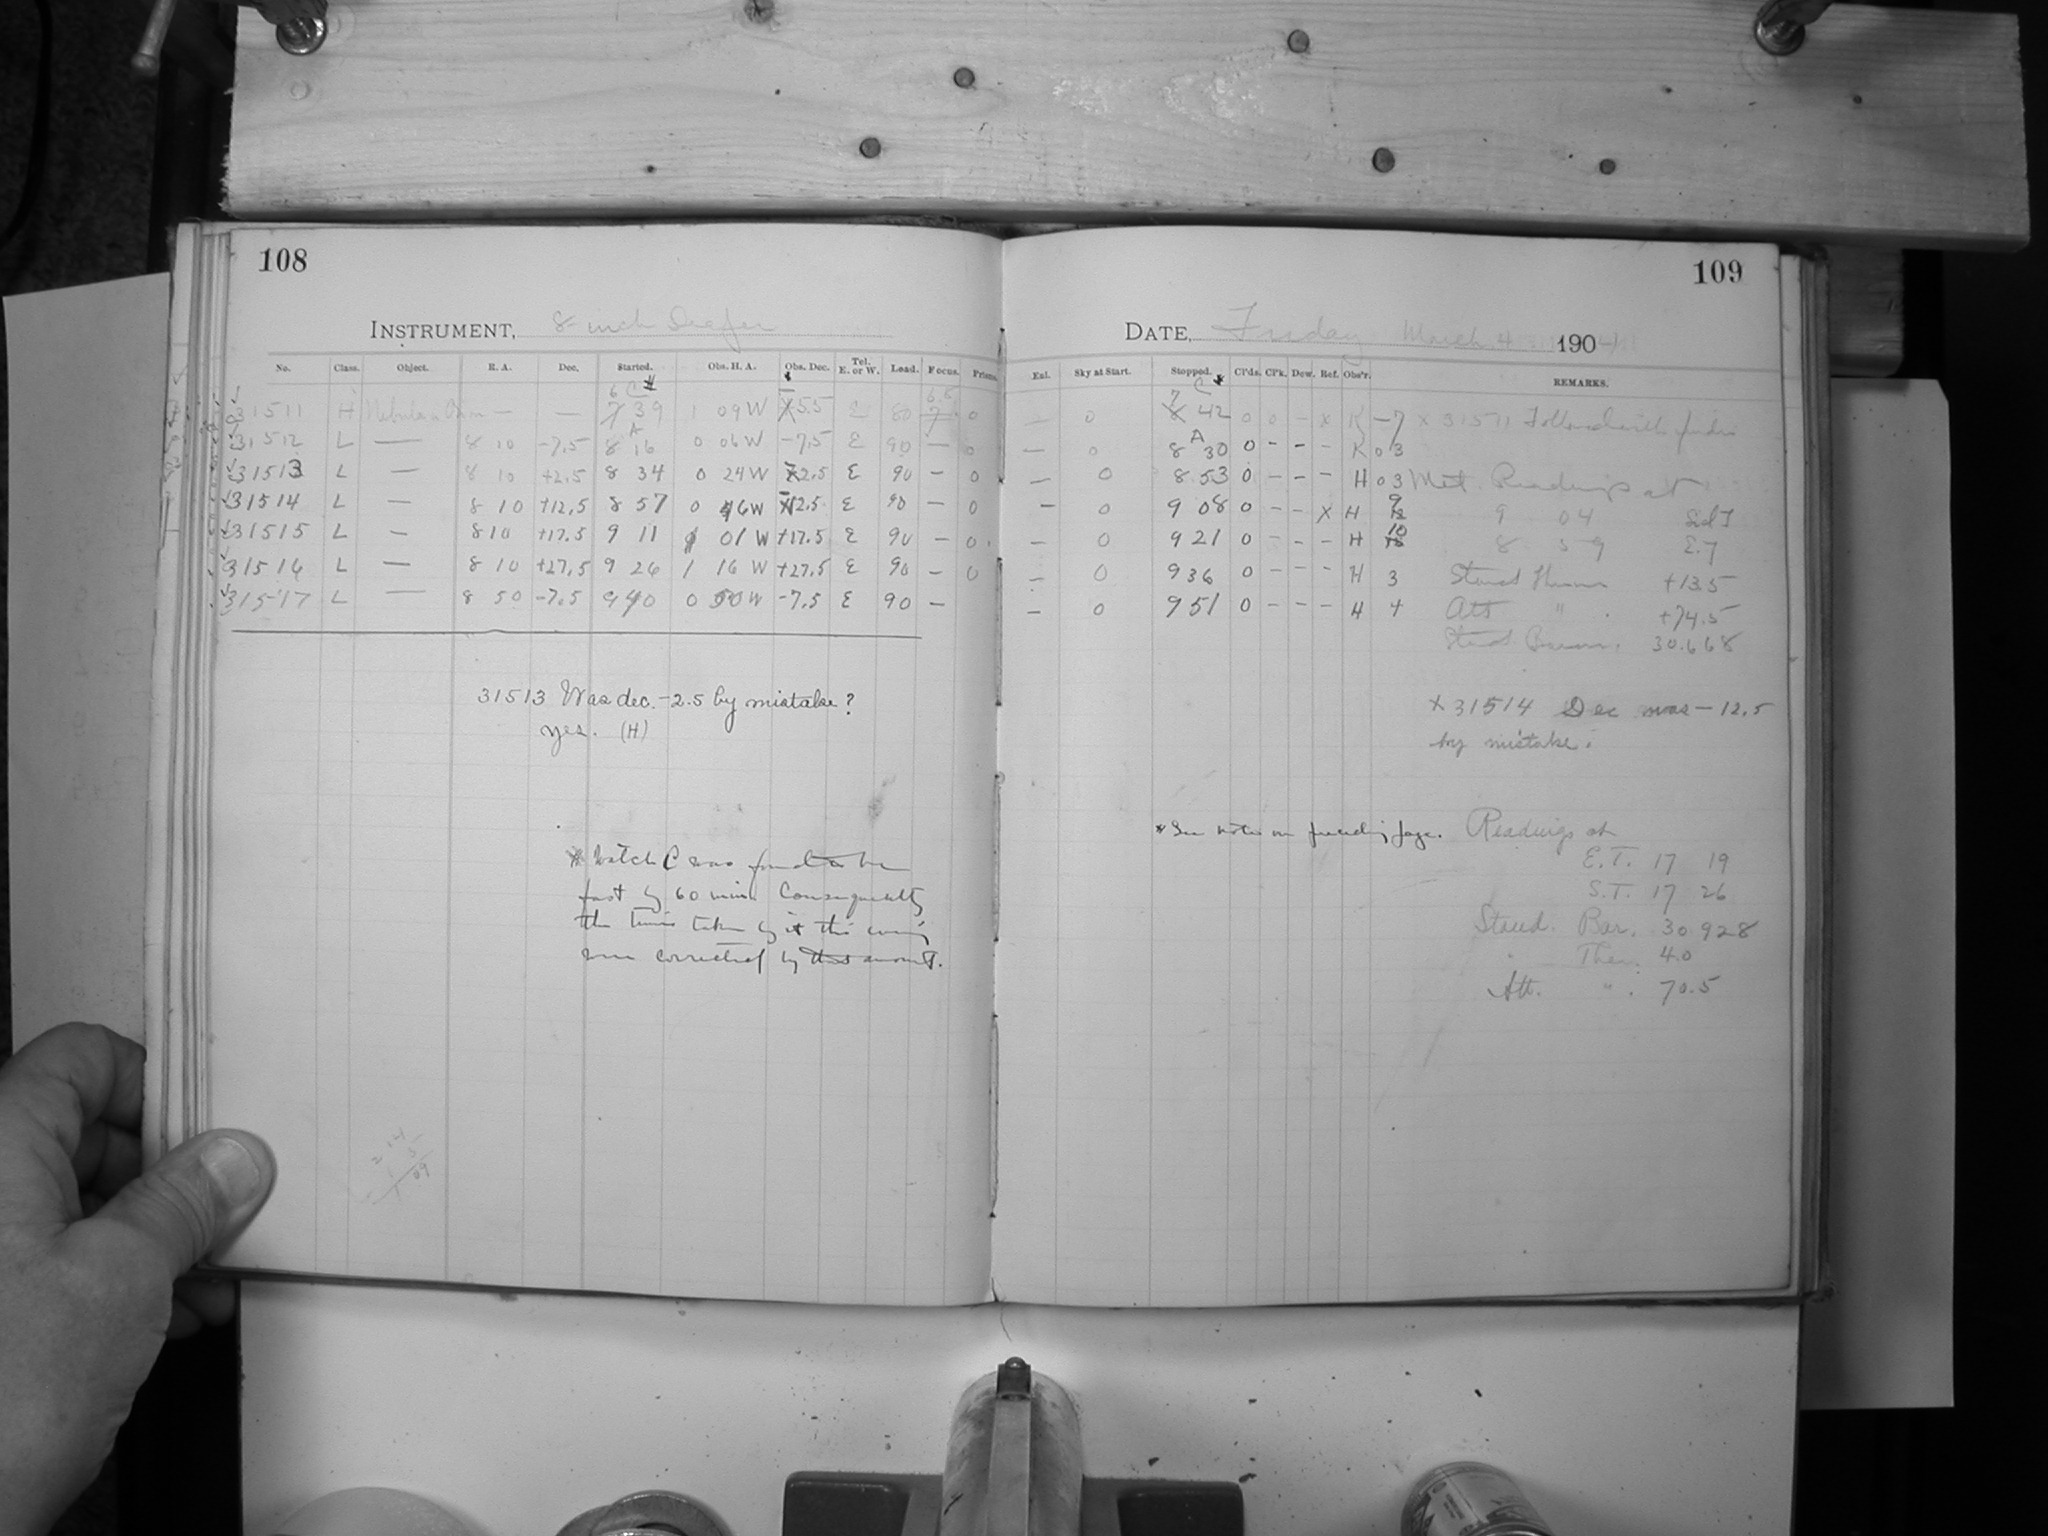 108
INSTRUMENT, 8 inch
No. Class. Object. R. A. Dec. Started. Obs. H. A. Obs. Dec. Tel. E. or W. Lead. Focus. Prism.
6 C *
31511 H Nebula in Orion — — 7 39 1 09 W 5.5 E 80 7 0
A
31512 L — 8 10 -7.5 8 16 0 06 W -7.5 E 90 — 0
31513 L — 8 10 +2.5 8 34 0 24 W -2.5 E 90 – 0
31514 L — 8 10 +12.5 8 57 0 46 W -12.5 E 90 — 0
31515 L — 8 10 +17.5 9 11 1 01 W +17.5 E 90 – 0
31516 L — 8 10 +27.5 9 26 1 16 W +27.5 E 90 – 0
31517 L — 8 50 -7.5 9 40 0 50 W -7.5 E 90 –
31513 Was dec. -2.5 by mistake?
yes. (H)
* Watch C was found to be
fast by 60 min. Consequently
the times taken by it this evening
were corrected by this amount.
2 14
1 5
1 09
109
DATE, Friday March 4 1904
Eal. Sky at Start. Stopped. Cl'ds. Cl'k. Dew. Ref. Obs'r. REMARKS.
7 C *
— 0 8 42 0 0 – x K – 7 x 31511 Followed with finder
A
— 0 8 30 0 – – – K 0 3
— 0 8 53 0 – – – H 0 3 Met. Readings at
– 0 9 08 0 – – X H 9 9 04 Sid T
– 0 9 21 0 – – – H 10 8 59 E.T
– 0 9 36 0 – – – H 3 Stand Therm +13.5
– 0 9 51 0 – – – H 4 Att " . +74.5
Stand. Barom. 30.668
x 31514 Dec was – 12.5
by mistake.
* See notes on preceding page. Readings at
E.T. 17 19
S.T. 17 26
Stand. Bar. 30.928
" Ther. 4.0
Att. " . 70.5